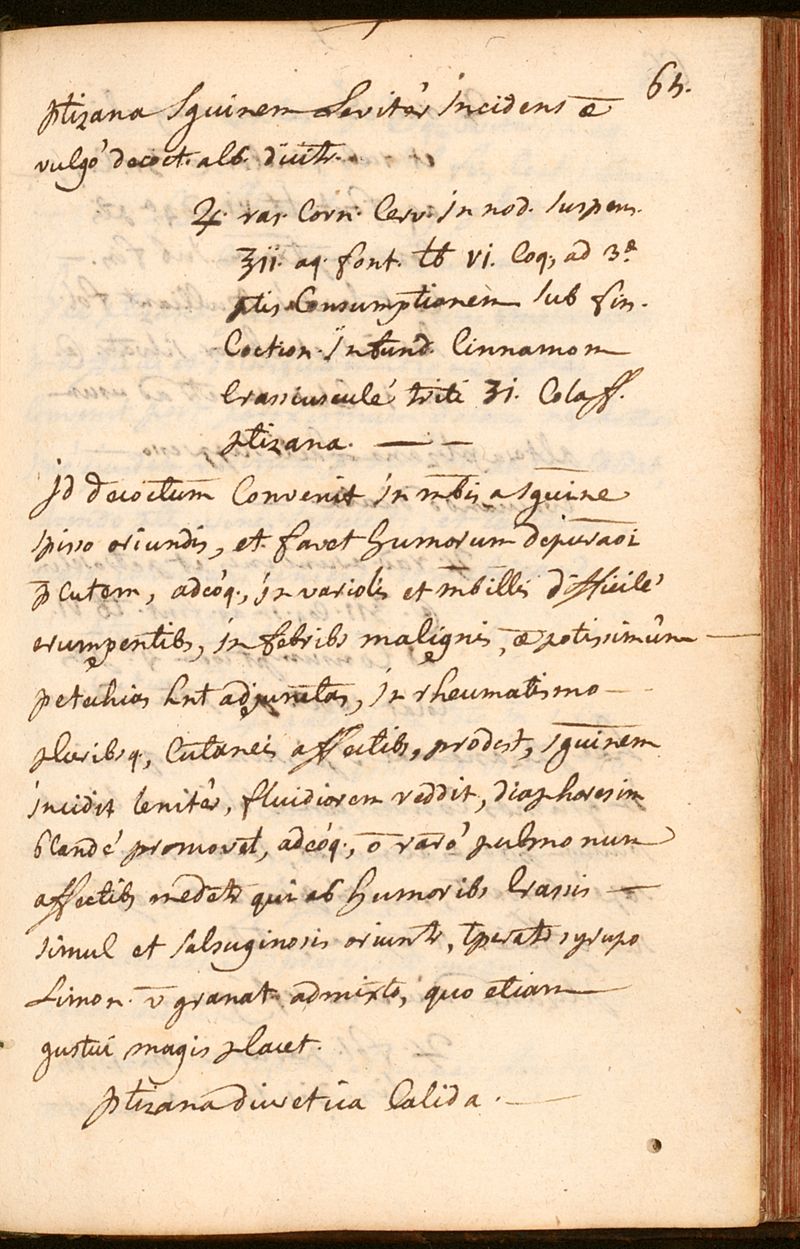 65.
ptizana Sguinem Leviter Incidens ē
vulgo decoct. alb. dicitr.
♃. ras. Corn. Cerv. in nod. suspens.
ʒii. aq. font. ℔ vi. Coq, ad 3ª
ptis Consumptionem sub fin.
Coction. Infund. Cinnamom
Crassiusculé triti ʒi. Cola ff.
ptizana.
Jd decoctum Convenit in mbis a Sguine
spisso oriundis, et favet humorum depuraoi
p̄ Cutem, adeóq, in variolis et mbillis difficilé
erumpentibs, in febribs malignis, ē potissimûm
petechias hnt adjunctas, in rheumatismo
pluribsq, Cutaneis affectibs, prodest, sguinem
incidit lenitêr, fluidiorem reddit, diaphoresim
blandé promovet, adeóq, ō raró pulmonum
affectibs medetr qui ab humoribs Crassis
simul et salsuginosis oriuntr, tperato syrupo
Limon. v̄ granat. admixto, quo etiam
gustui magis placet.
ptizana diuretica Calida.